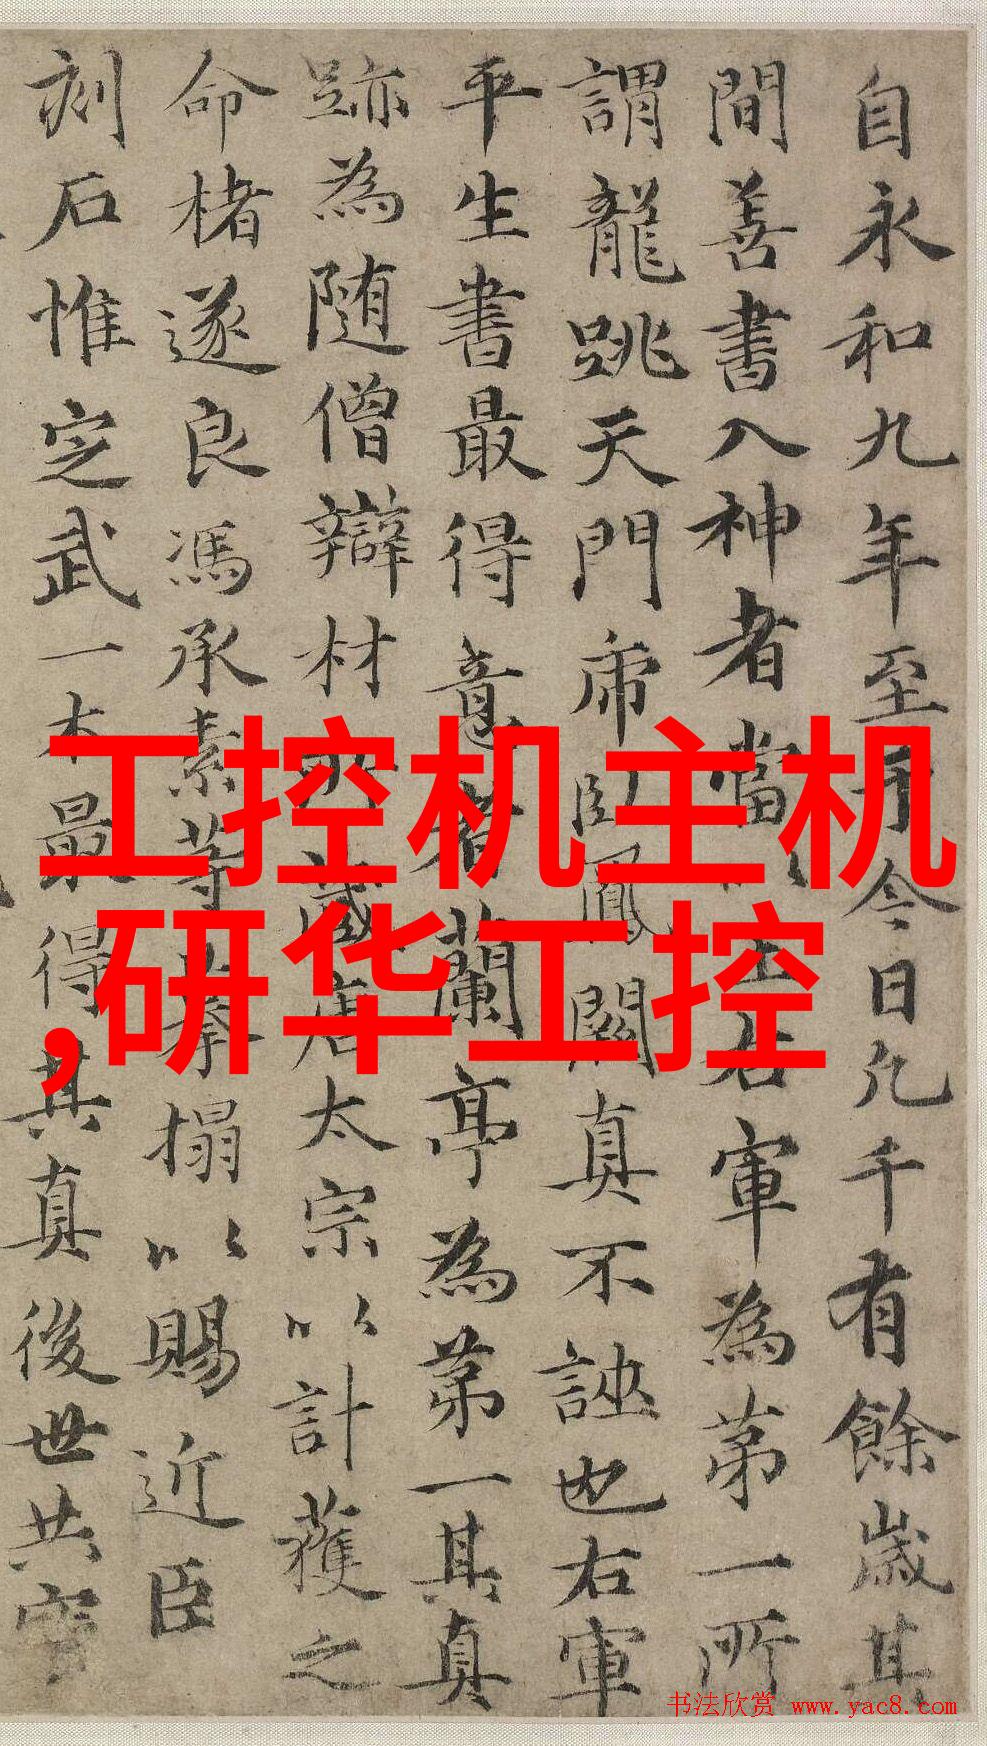 自永和九年至于今日凡千有餘歲其
間善書入神者當王右軍為第一所
謂龍跳天門帍卧鳳闕真不誣也右軍
平生書最得意者蘭亭為第一其真
跡為随僧辯材所藏唐太宗以計獲之
命楮遂良馮承素等搨以賜近臣
刻石惟定武一本最得其真後世共寳
工控机主机
,研华工控
书法欣赏 www.yac8.com